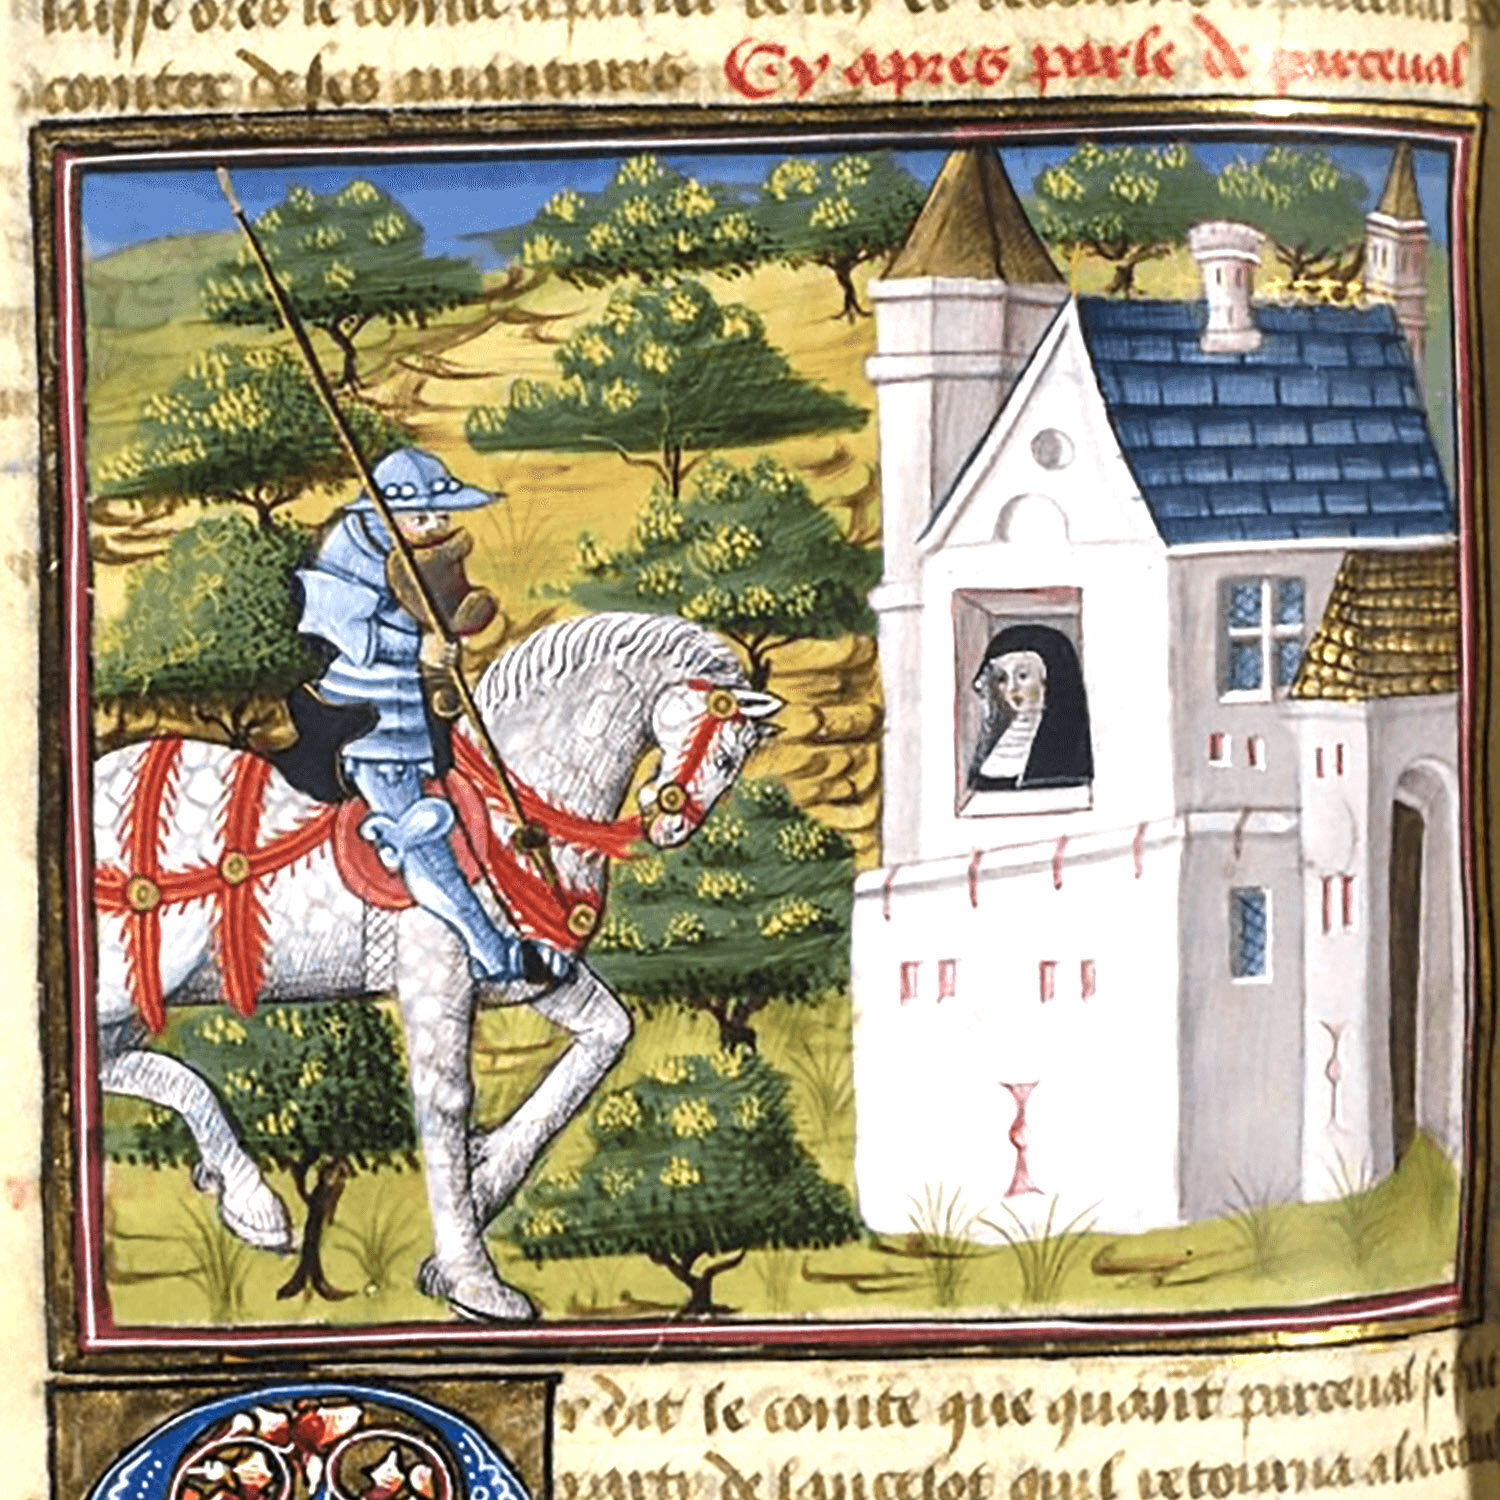 laisse ores le conte a parler de lui et retourne a parceval
compter de ses auantures Cy apres parle de parceual
r dit le comte que quant parceual se fue
party de lancelot quil retourna a la recluse